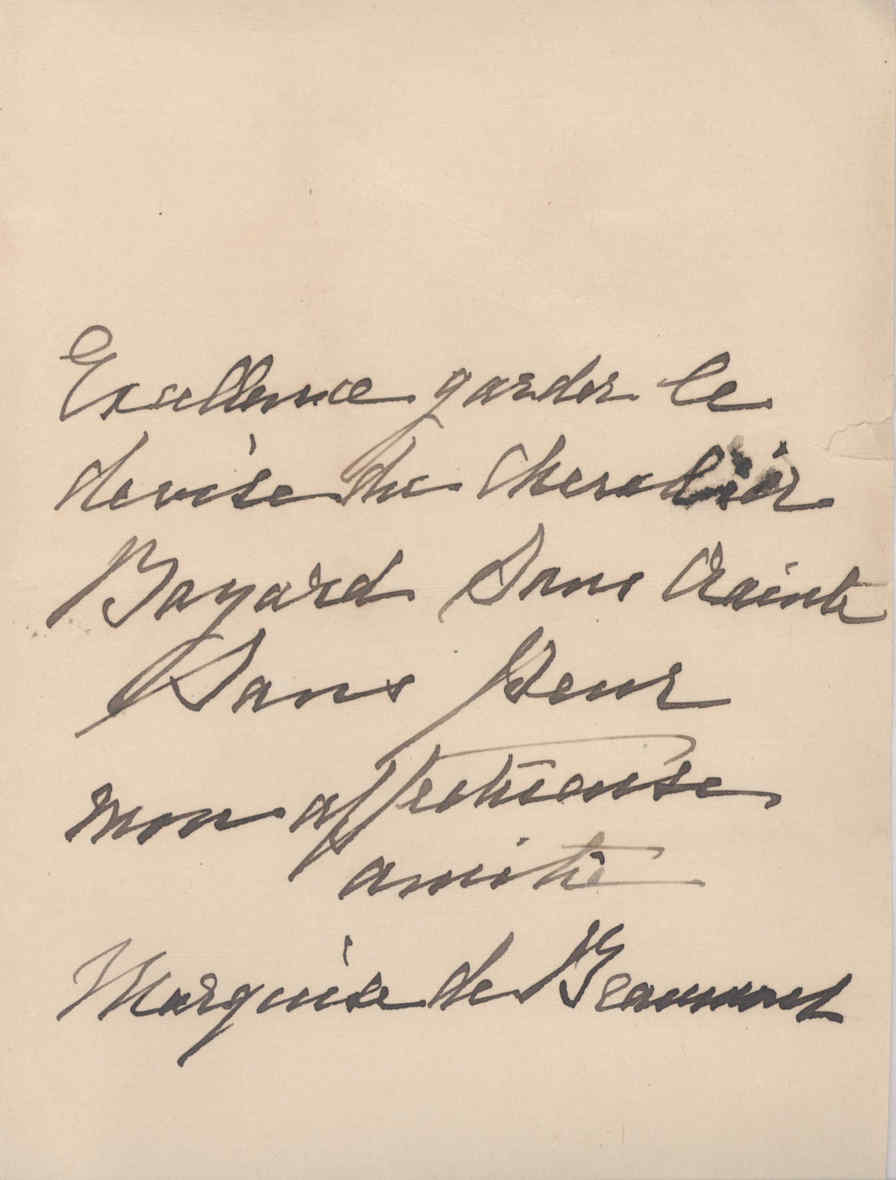 Excellence garder le
devise du Chevalier
Bayard Sans Crainte
Sans Peur
mon affectueuse
amitie
Marquise de